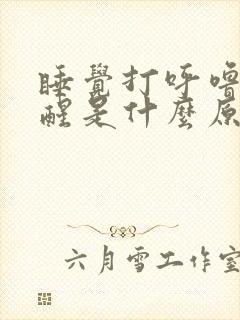 睡覺打呼嚕
醒是什麼原
六月雪工作室